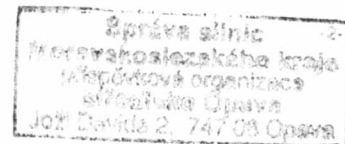 Správa silnic -2-
Moravskoslezského kraje
příspěvková organizace
středisko Opava
Joži Davida 2, 747 06 Opava